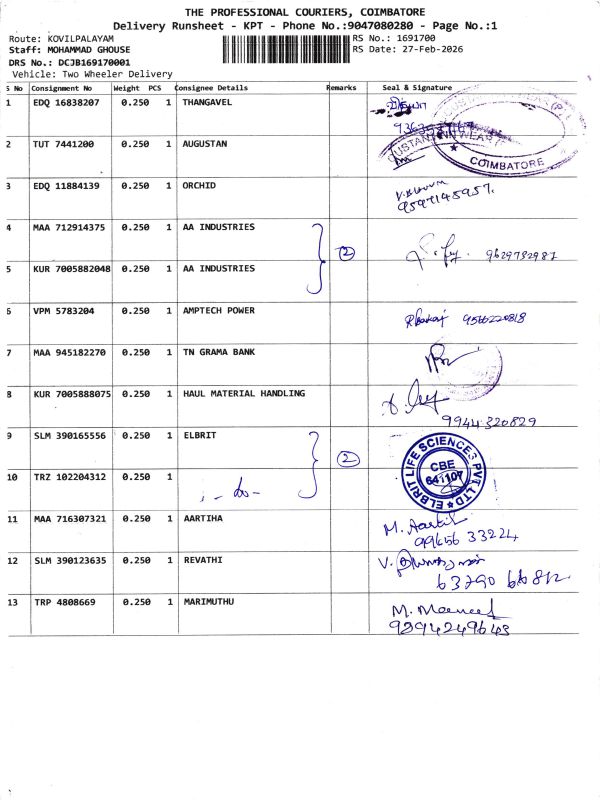 THE PROFESSIONAL COURIERS, COIMBATORE
Delivery Runsheet - KPT - Phone No.:9047080280 - Page No.:1
Route: KOVILPALAYAM RS No.: 1691700
Staff: MOHAMMAD GHOUSE RS Date: 27-Feb-2026
DRS No.: DCJB169170001
Vehicle: Two Wheeler Delivery
S No Consignment No Weight PCS Consignee Details Remarks Seal & Signature
1 EDQ 16838207 0.250 1 THANGAVEL
2 TUT 7441200 0.250 1 AUGUSTAN
COIMBATORE
3 EDQ 11884139 0.250 1 ORCHID
9597145957.
4 MAA 712914375 0.250 1 AA INDUSTRIES 2 9629732987
5 KUR 7005882048 0.250 1 AA INDUSTRIES
6 VPM 5783204 0.250 1 AMPTECH POWER 9566220818
7 MAA 945182270 0.250 1 TN GRAMA BANK
8 KUR 7005888075 0.250 1 HAUL MATERIAL HANDLING
9944 320829
9 SLM 390165556 0.250 1 ELBRIT 2
ELBRIT LIFE SCIENCES PVT LTD
CBE
641107
10 TRZ 102204312 0.250 1 - do -
11 MAA 716307321 0.250 1 AARTIHA M. Aartih
99656 33224
12 SLM 390123635 0.250 1 REVATHI
63790 66812
13 TRP 4808669 0.250 1 MARIMUTHU